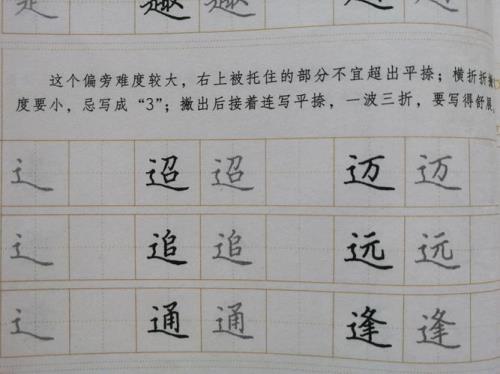 这个偏旁难度较大，右上被托住的部分不宜超出平捺；横折折撇
度要小，忌写成“3”；撇出后接着连写平捺，一波三折，要写得舒展
辶 迢 迢 迈 迈
辶 追 追 远 远
辶 通 通 逢 逢